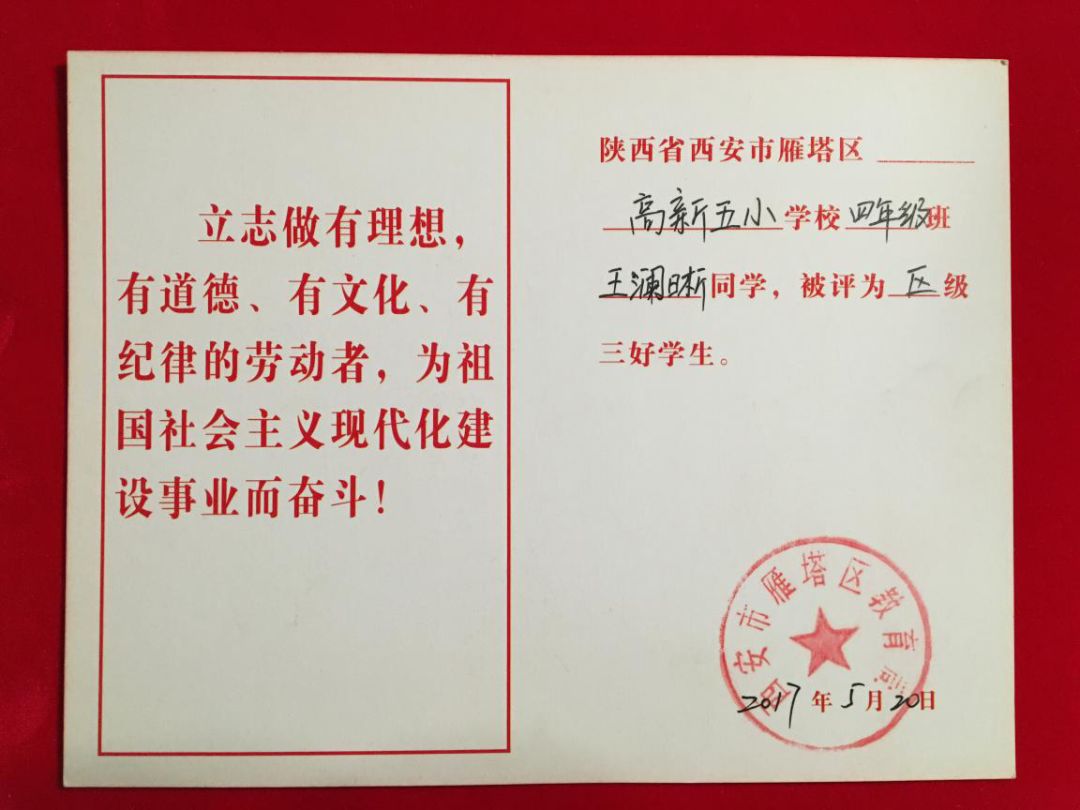 立志做有理想，
有道德、有文化、有
纪律的劳动者，为祖
国社会主义现代化建
设事业而奋斗！
陕西省西安市雁塔区
高新五小学校四年级班
王澜晰同学，被评为区级
三好学生。
西安市雁塔区教育局
2017年5月20日